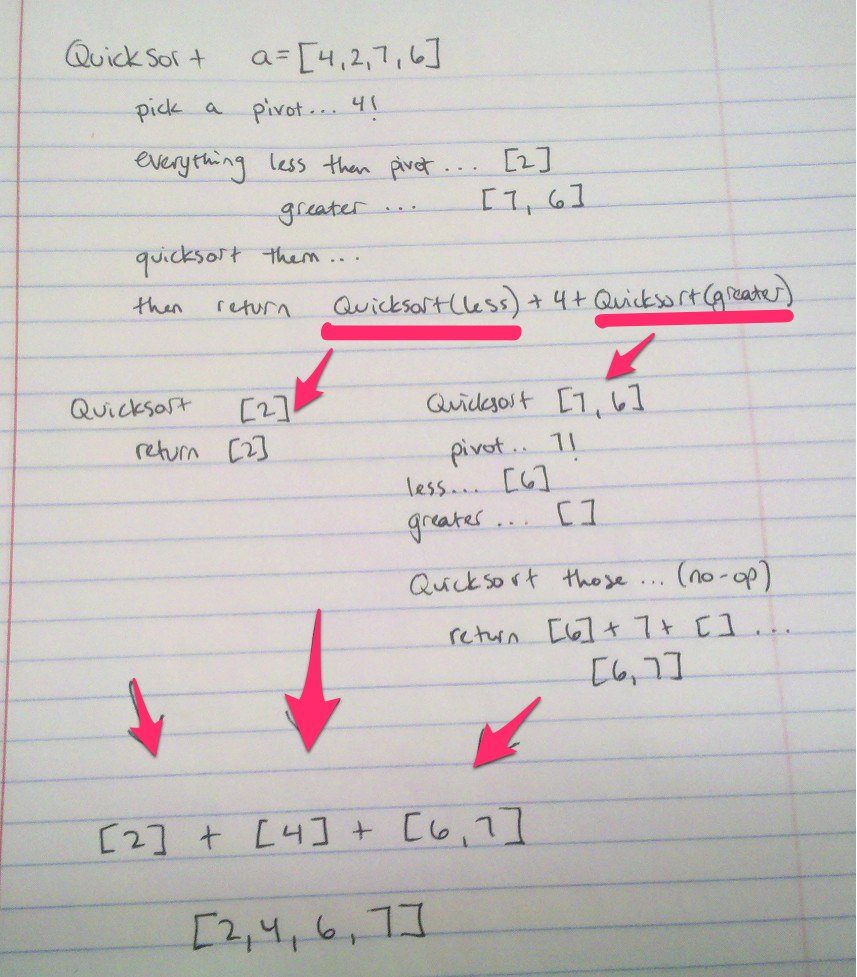 Quicksort a=[4,2,7,6]
pick a pivot... 4!
everything less then pivot... [2]
greater ... [7, 6]
quicksort them...
then return Quicksort(less) + 4 + Quicksort(greater)
Quicksort [2]
return [2]
Quicksort [7, 6]
pivot.. 7!
less... [6]
greater ... [ ]
Quicksort those ... (no-op)
return [6] + 7 + [ ] ...
[6,7]
[2] + [4] + [6,7]
[2,4,6,7]